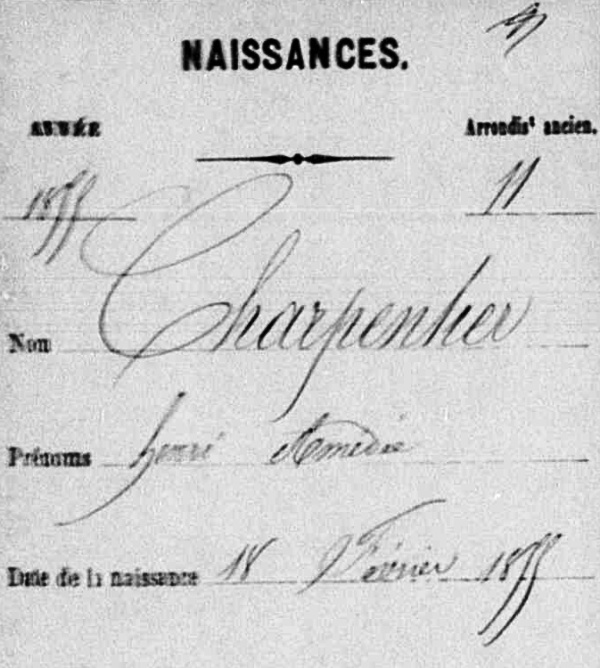 NAISSANCES.
ANNÉE Arrondist ancien.
1855 11
Nom Charpentier
Prénoms Henri Amédée
Date de la naissance 18 Février 1855